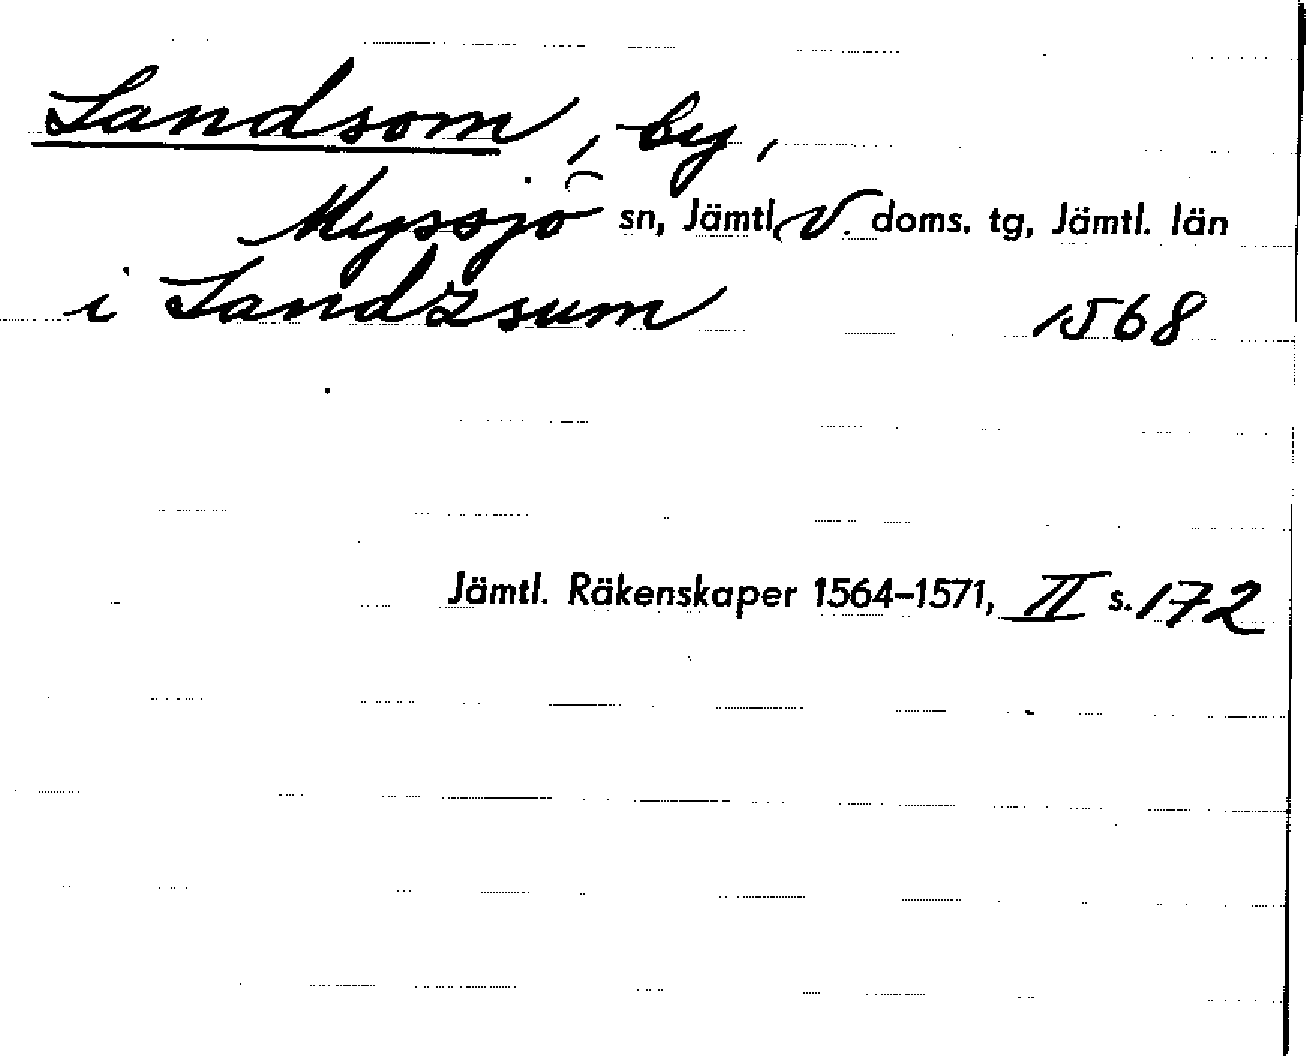 Landsom, by,
Myssjö sn, Jämtl. V. doms. tg, Jämtl. län
i Landzsum 1568
Jämtl. Räkenskaper 1564–1571, II s. 172